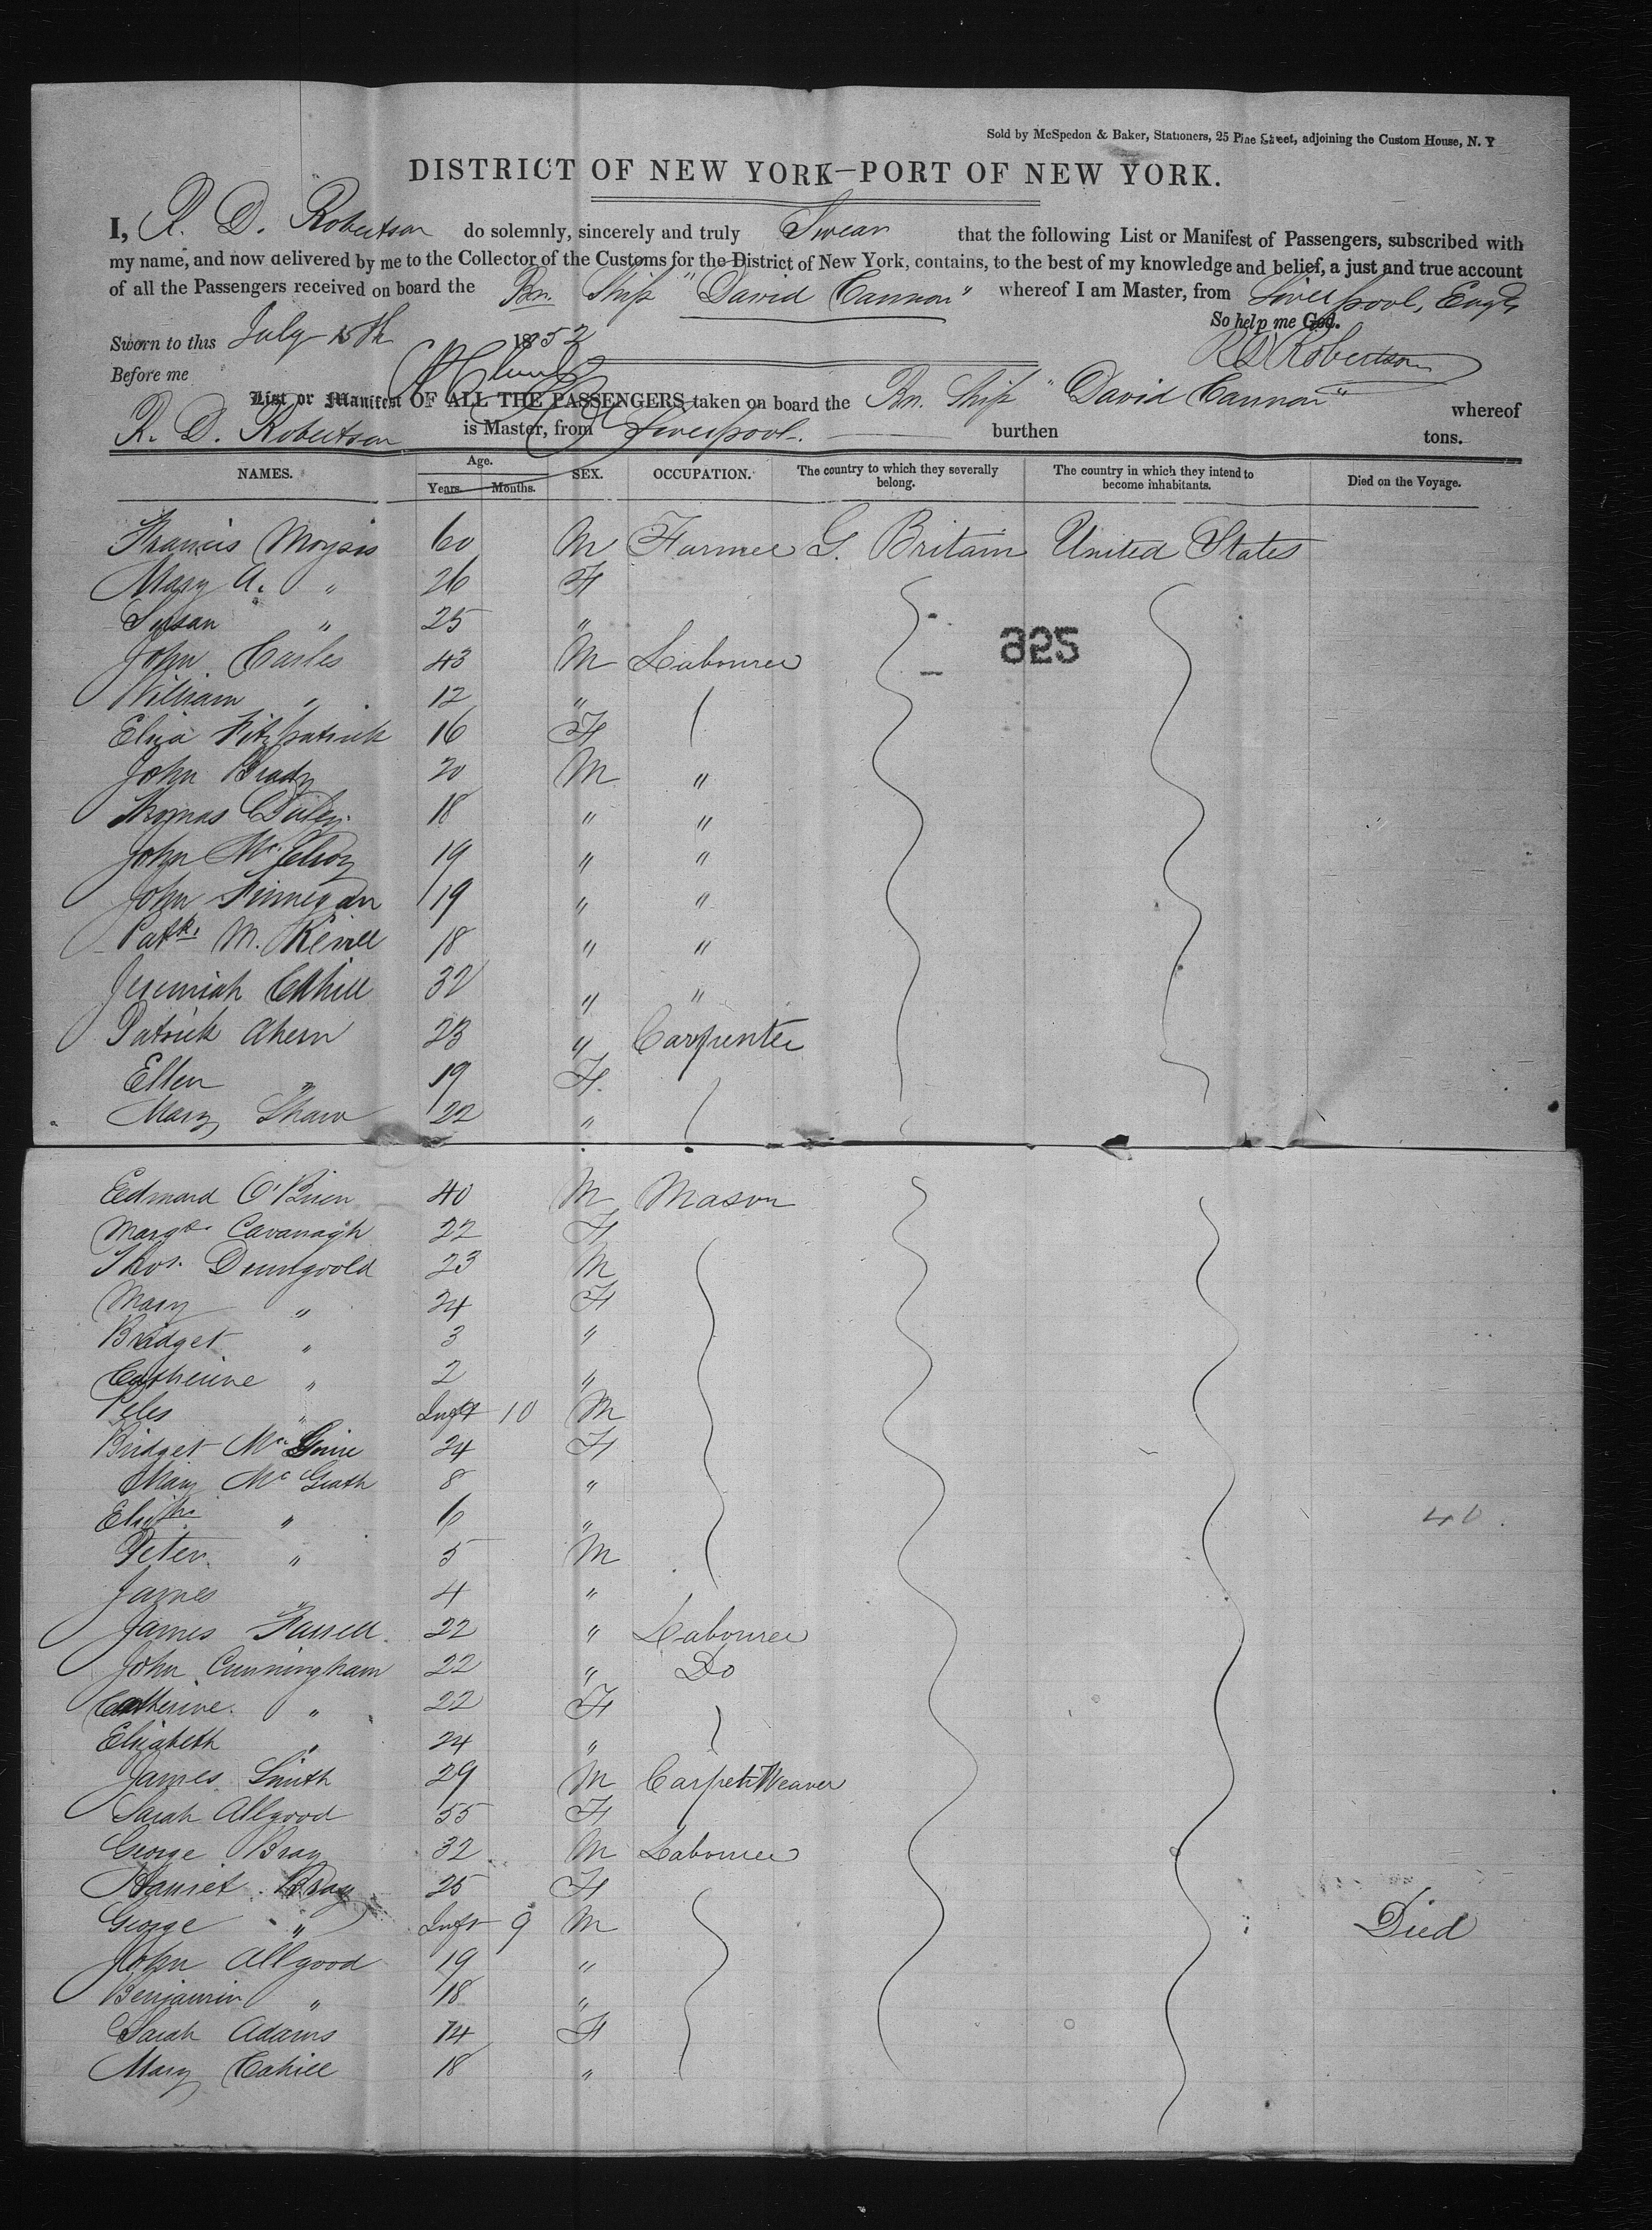 Sold by McSpedon & Baker, Stationers, 25 Pine Street, adjoining the Custom House, N. Y
DISTRICT OF NEW YORK—PORT OF NEW YORK.
I, R. D. Robertson do solemnly, sincerely and truly Swear that the following List or Manifest of Passengers, subscribed with
my name, and now delivered by me to the Collector of the Customs for the District of New York, contains, to the best of my knowledge and belief, a just and true account
of all the Passengers received on board the Brn. Ship "David Cannon" whereof I am Master, from Liverpool, Engd
So help me God.
Sworn to this July 15th 1852 R D Robertson
Before me
List or Manifest OF ALL THE PASSENGERS taken on board the Brn. Ship "David Cannon" whereof
R. D. Robertson is Master, from Liverpool. burthen tons.
NAMES. Age. Years. Months. SEX. OCCUPATION. The country to which they severally belong. The country in which they intend to become inhabitants. Died on the Voyage.
Francis Moyses 60 M Farmer G. Britain United States
Mary A. " 26 F
Susan " 25 "
625
John Carles 43 M Labourer
William " 12 "
Eliza Fitzpatrick 16 F
John Brady 20 M "
Thomas Daley 18 " "
John McElroy 19 " "
John Finnegan 19 " "
Patk. M. Kevill 18 " "
Jeremiah Cahill 32 " "
Patrick Ahern 23 " Carpenter
Ellen " 19 F.
Mary Shaw 22 "
Edmard O'Brien 40 M Mason
Margt. Cavanagh 22 F
Thos. Dungoold 23 M
Mary " 24 F
Bridget " 3 "
Catherine " 2 "
Peter " Inft 10 M
Bridget McGuire 24 F
Mary McGrath 8 "
Elizth. " 6 "
40.
Peter " 5 M
James " 4 "
James Farrell 22 " Labourer
John Cunningham 22 " Do
Catherine " 22 F
Elizabeth " 24 "
James Smith 29 M Carpet Weaver
Sarah Allgood 55 F
George Bray 32 M Labourer
Harriet Bray 25 F
George " Inft 9 M Died
John Allgood 19 "
Benjamin " 18 "
Sarah Adams 14 F
Mary Cahill 18 "